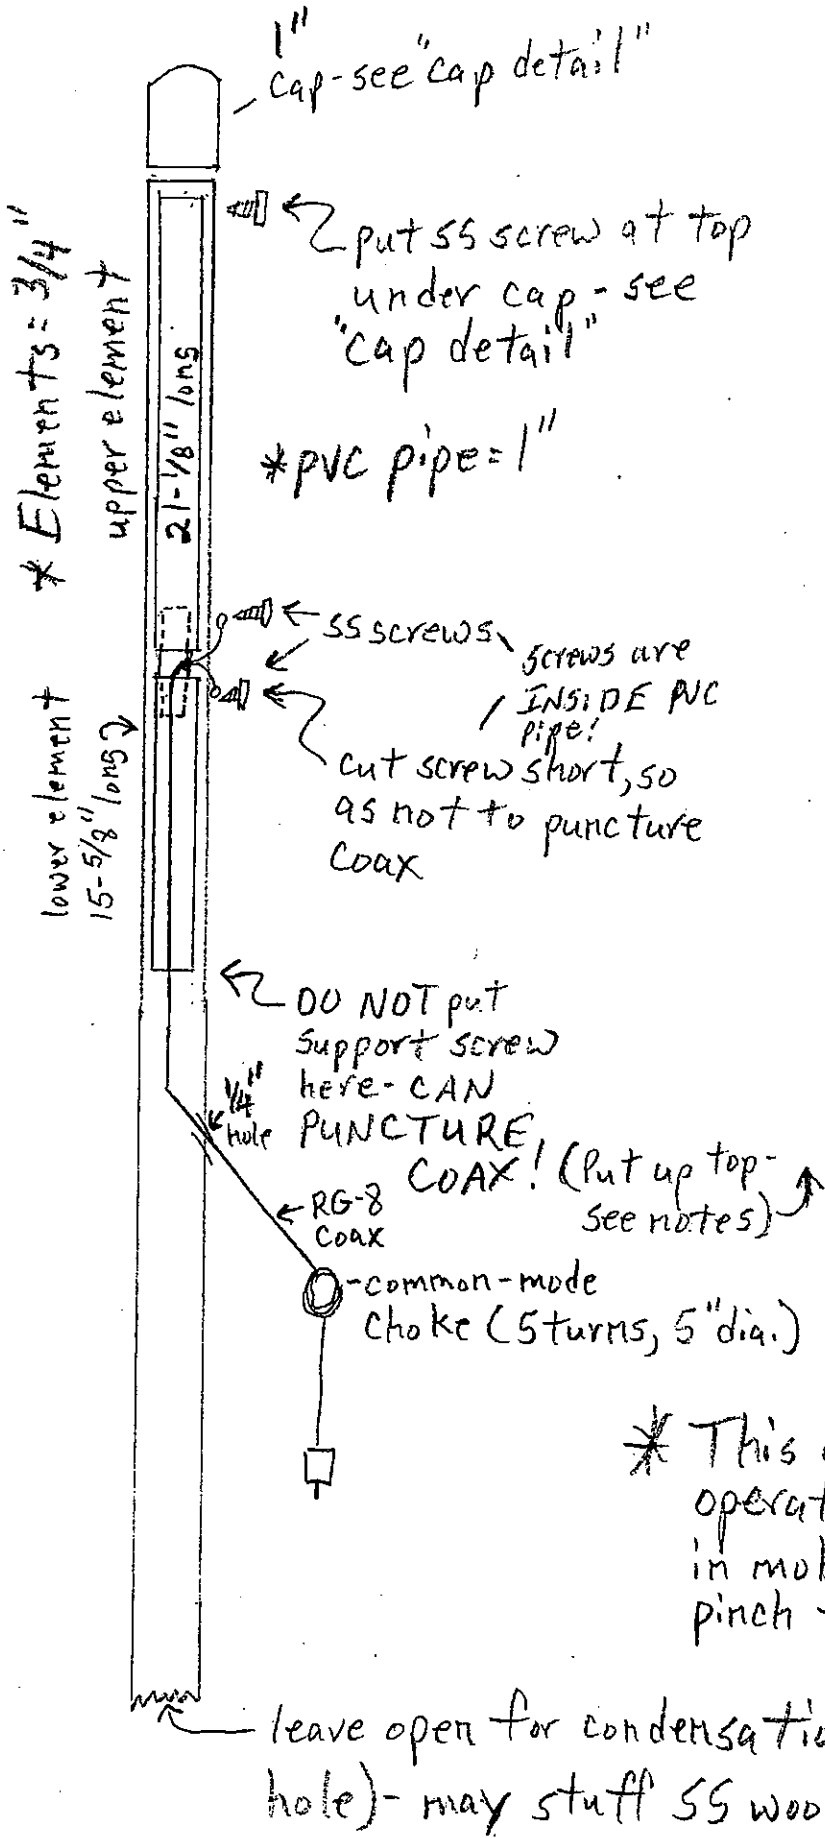 1"
Cap - see "cap detail"
put SS screw at top
under cap - see
"cap detail"
* Elements = 3/4"
upper element
21-1/8" long
* PVC pipe = 1"
SS screws
screws are
INSIDE PVC
pipe!
cut screw short, so
as not to puncture
coax
lower element
15-5/8" long
DO NOT put
support screw
here - CAN
PUNCTURE
COAX! (Put up top -
see notes)
1/4"
hole
RG-8
coax
- common-mode
choke (5 turns, 5" dia.)
* This
operat
in mo
pinch -
leave open for condensatio
hole) - may stuff SS woo